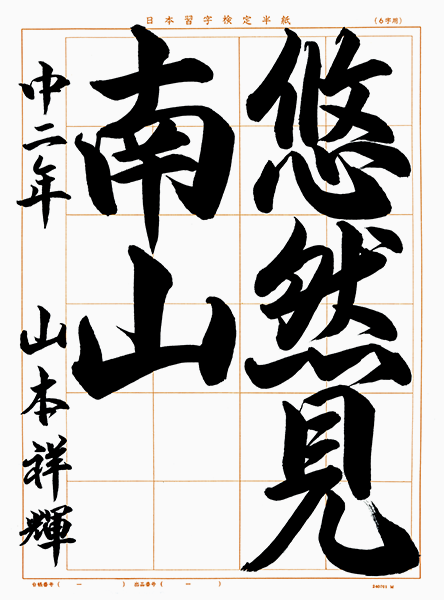 日本習字検定半紙
(6字用)
悠然見
南山
中二年 山本祥輝
台帳番号( ー ) 出品番号( ー )